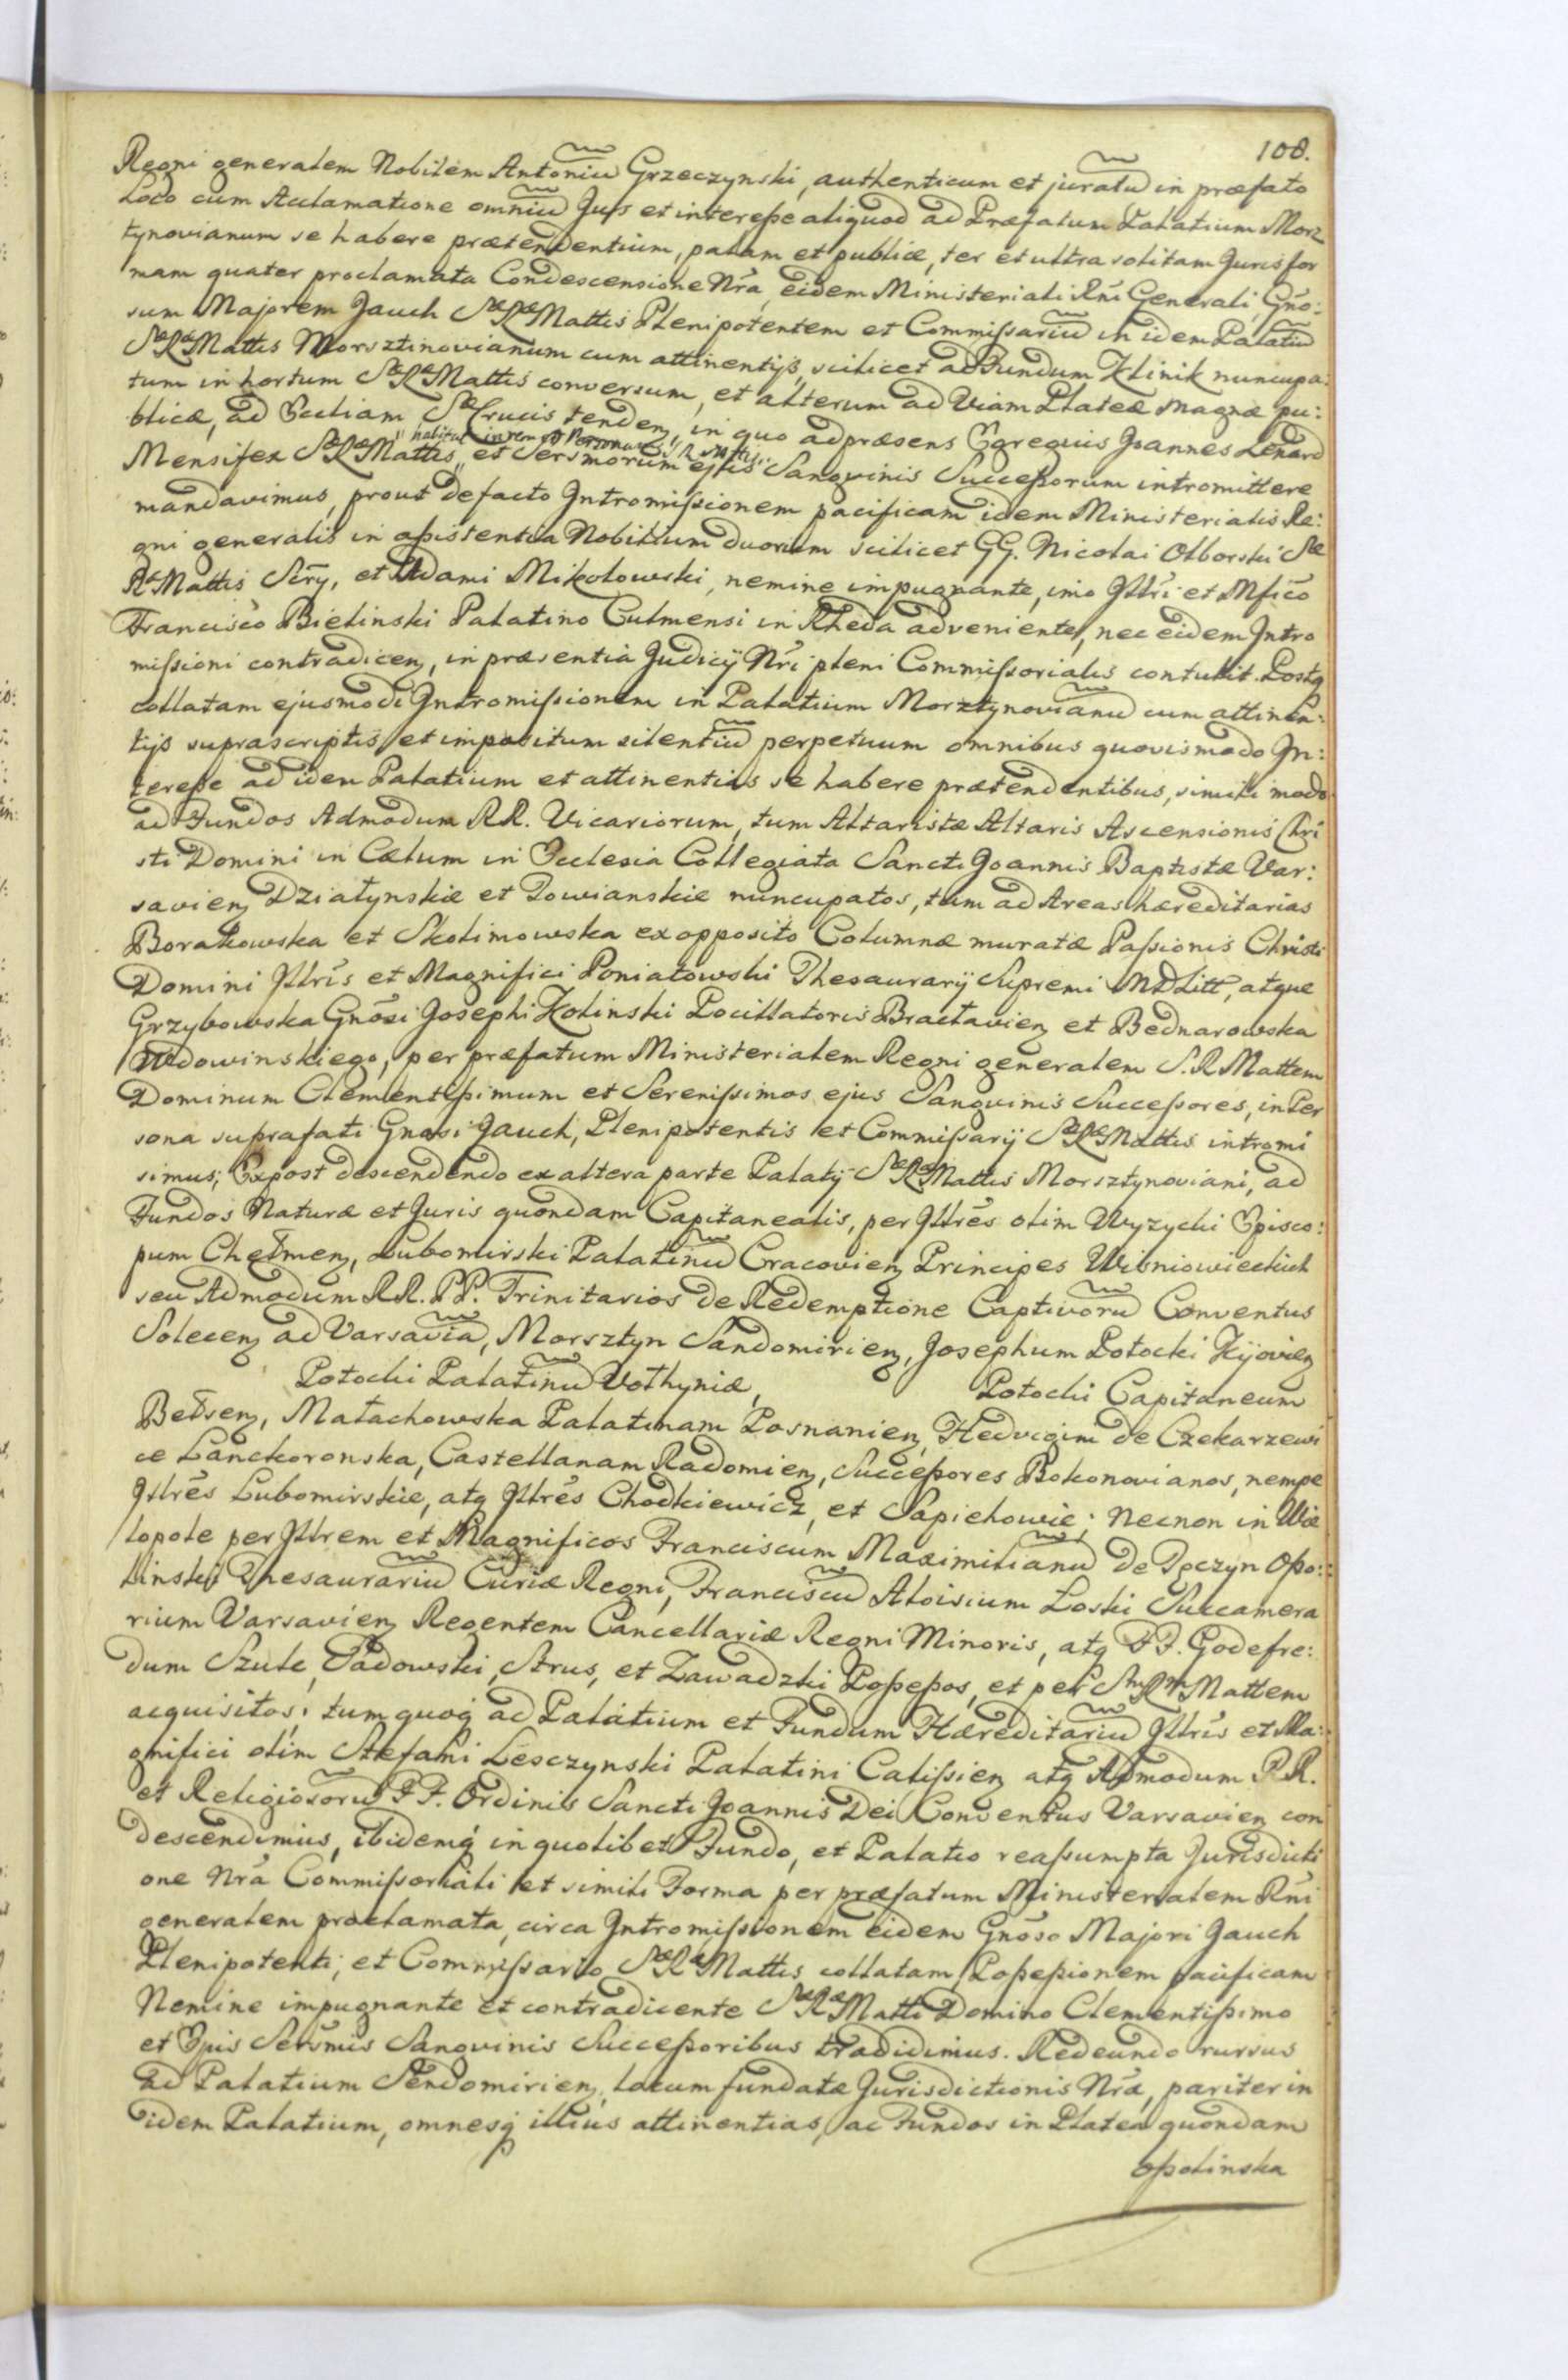 108.
Regni generalem Nobilem Antoniu Grzeczynski, authenticum et juratu in præfato
Loco cum Acclamatione omniu Jus et interesse aliquod ad Præfatum Palatium Morz
tynovianum se habere prætendentium, palam et publice, ter et ultra solitam Juris for
mam quater proclamata Condescensione Nrã, eidem Ministeriali Rñi Generali, Gño:
sum Majorem Jauch Sæ Ræ Mattis Plenipotentem et Commissariu in idem Palatiu
Sæ Ræ Mattis Morsztinovianum cum attinentijs, scilicet ad Fundum Klinik nuncupa:
tum in hortum Sæ Ræ Mattis conversum, et alterum ad Viam Plateæ magnæ pu:
blicæ, ad Eccliam Sæ Crucis tenden, in quo ad præsens Egregius Joannes Lenard
Mensifex Sæ Ræ Mattis habitat et Sersmorum ejus Sangvinis Successorum intromittere
mandavimus, prout de facto Intromissionem pacificam idem Ministerialis Re:
gni generalis in assistentia Nobilium duorum scilicet GG. Nicolai Olborski Sæ
Ræ Mattis Scrij, et Adami Mikołowski, nemine impugnante, imo Illri et Mfico
Francisco Bielinski Palatino Culmensi in Rheda adveniente, nec eidem Intro
missioni contradicen, in præsentia Judicij Nri pleni Commissorialis contulit. Postq
collatam ejusmodi Intromissionem in Palatium Morztynovianu cum attinen:
tijs suprascriptis, et impositum silentiu perpetuum omnibus quovismodo In:
teresse ad idem Palatium et attinentias se habere prætendentibus, simili modo
ad Fundos Admodum RR. Vicariorum, tum Altaristæ Altaris Ascensionis Chri
sti Domini in Cælum in Ecclesia Collegiata Sancti Joannis Baptistæ Var:
savien Działynskie et Powianskie nuncupatos, tum ad Areas hæreditarias
Borakowska et Skolimowska ex opposito Columnæ muratæ Passionis Christi
Domini Illris et Magnifici Poniatowski Thesaurarij Supremi MD Litt, atque
Grzybowska Gnosi Josephi Kolinski Pocillatoris Bracłavien et Bednarowska
Wdowinskiego, per præfatum Ministerialem Regni generalem S. R. Mattem
Dominum Clementissimum et Serenissimos ejus Sangvinis Successores, in Per
sona suprafati Gnosi Jauch, Plenipotentis et Commissarij Sæ Ræ Mattis intromi
simus; Expost descendendo ex altera parte Palatij Sæ Ræ Mattis Morsztynoviani, ad
Fundos Naturæ et Juris quondam Capitanealis, per Illres olim Wyzycki Episco:
pum Chełmen, Lubomirski Palatinu Cracovien Principes Wisniowieckich
seu Admodum RR. PP. Trinitarios de Redemptione Captivoru Conventus
Solecen ad Varsavia, Morsztyn Sandomirien, Josephum Potocki Kijovien
Potocki Palatinu Vołhyniæ, Potocki Capitaneum
Bełsen, Małachowska Palatinam Posnanien, Hedvigim de Czekarzewi
ce Lanckoronska, Castellanam Radomien, Successores Bokonovianos, nempe
Illres Lubomirskie, atq Illres Chodkiewicz, et Sapiehowie; necnon in Wie
lopole per Illrem et Magnificos Franciscum Maximilianu de Tęczyn Osso:
linski Thesaurariu Curiæ Regni, Franciscu Aloisium Łoski Succamera
rium Varsavien Regentem Cancellariæ Regni Minoris, atq FF. Godefre:
dum Szulc, Padowski, Strus, et Zawadzki Possessos, et per Sm Rm Mattem
acquisitos; tum quoq ad Palatium et Fundum Hæreditariu Illris et Ma:
gnifici olim Stefani Lesczynski Palatini Calissien atq Admodum RR.
et Religiosoru FF. Ordinis Sancti Joannis Dei Conventus Varsavien con
descendimus, ibidemq in quolibet Fundo, et Palatio reassumpta Jurisdicti
one Nrã Commissoriali et simili Forma per præfatum Ministerialem Rñi
generalem proclamata, circa Intromissionem eidem Gnoso Majori Jauch
Plenipotenti, et Commissario Sæ Ræ Mattis collatam Possessionem pacificam
Nemine impugnante et contradicente Sæ Ræ Matti Domino Clementissimo
et Ejus Sersmis Sangvinis Successoribus tradidimus. Redeundo rursus
ad Palatium Sendomirien, locum fundatæ Jurisdictionis Nræ, pariter in
idem Palatium, omnesq illius attinentias, ac Fundos in Platea quondam
Ossolinska